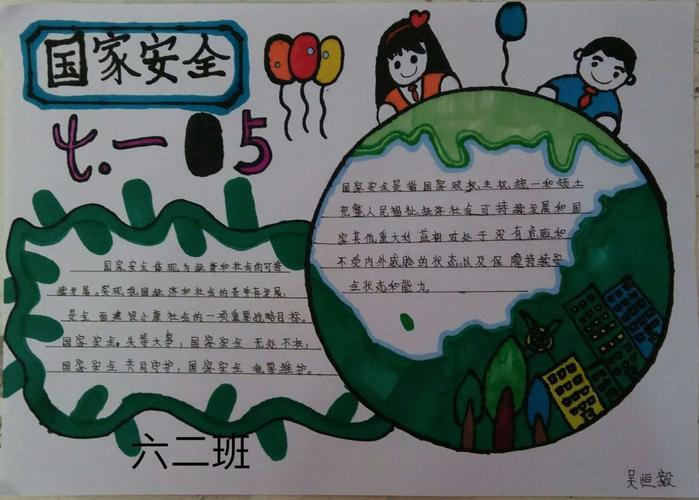 国家安全
七.一 5
国家安全是指国家政权、主权、统一和领土
完整、人民福祉、经济社会可持续发展和国
家其他重大利益相对处于没有危险和
不受内外威胁的状态,以及保障持续安
全状态和能力。
国家安全体现为经济和社会的可持
续发展。实现我国经济和社会的
是全面建设小康社会的一项重要战略目标。
国家安全。头等大事;国家安全 无处不在;
国家安全 共同守护;国家安全 也要维护。
六二班
吴恒毅